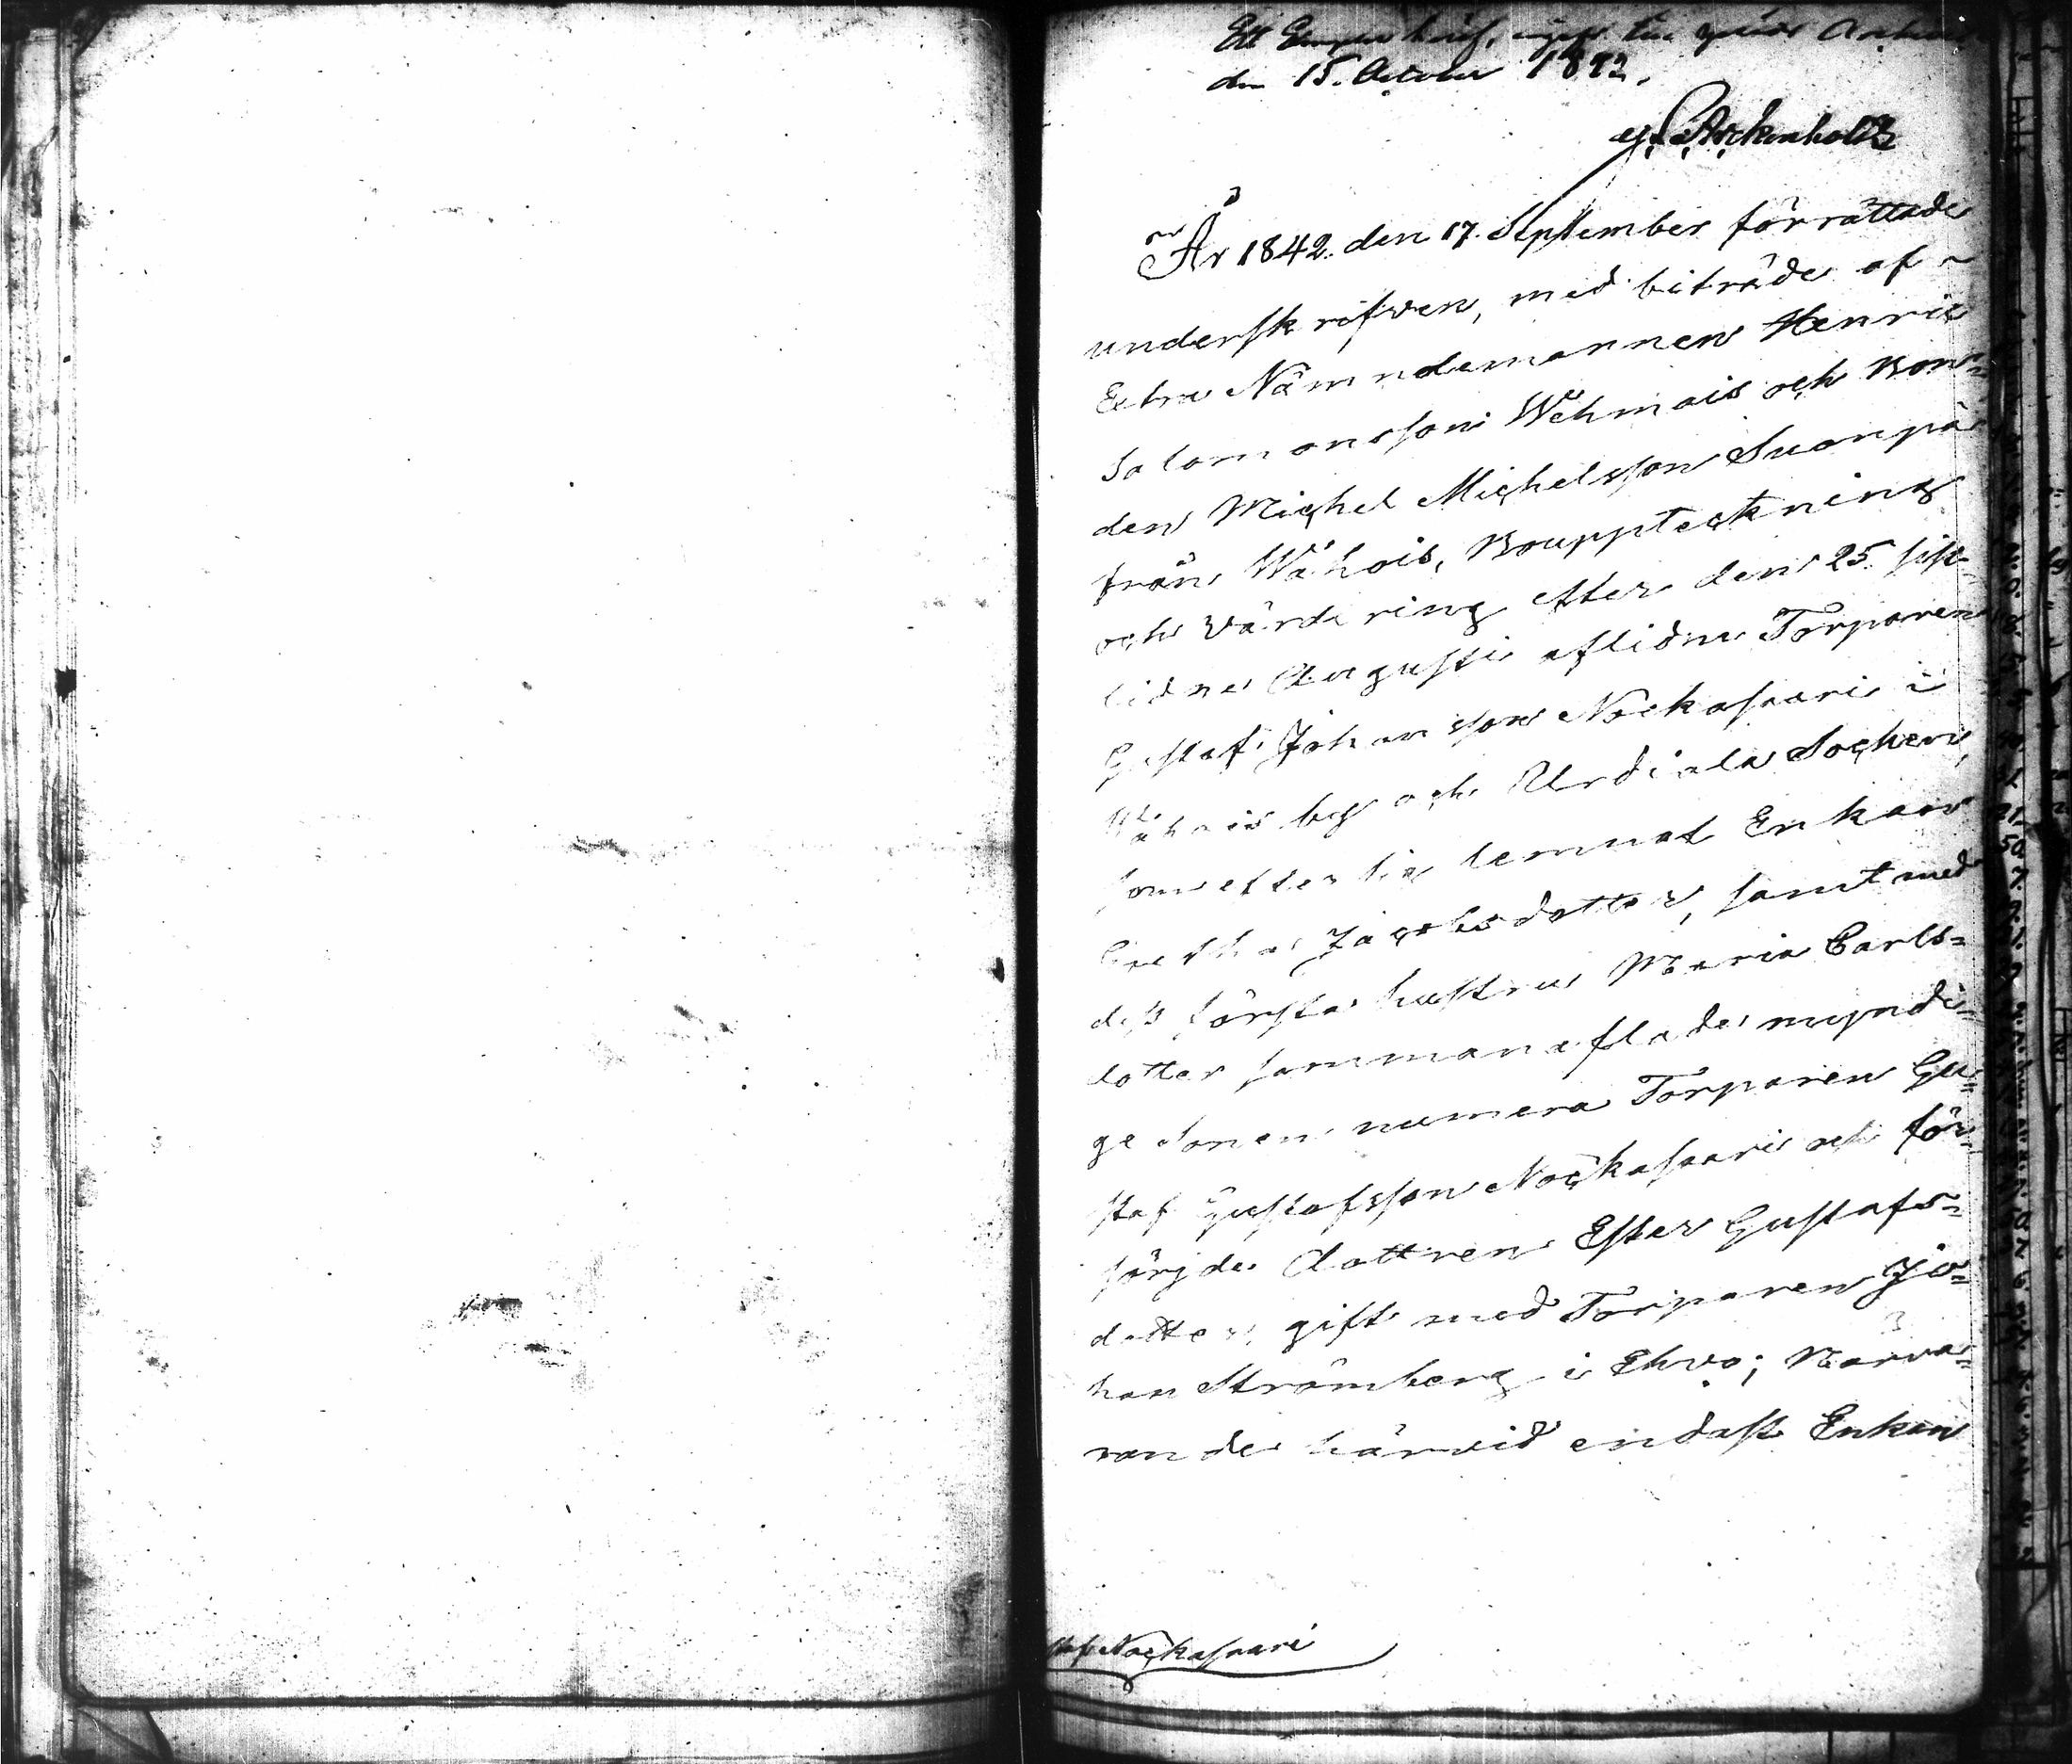 Ett Exemplar häraf,
den 15. October 1842.
Arckenholtz
År 1842. den 17. September förrättade
underskrifven, med biträde af
Extra Nämndemannen Henric
Salomonsson Wehmais och Bon-
den Michel Michelsson Suonpä
från Wåhois, Bouppteckning
och Värdering efter den 25. sist-
lidne Augusti aflidne Torparen
Gustaf Johansson Nockasaari i
Wåhois by och Urdiala Sochen,
som efter sig lemnat Enkan
Jacobsdotter, samt med
dess första hustru Maria Carls-
dotter sammanaflade myndi-
ge sonen numera Torparen Gu-
staf Gustafsson Nockasaari och för-
sörjde dottren Ester Gustafs-
dotter, gift med Torparen Jo-
han Strömberg i Ehro; Närva-
rande härvid endast Enkan
staf Nockasaari